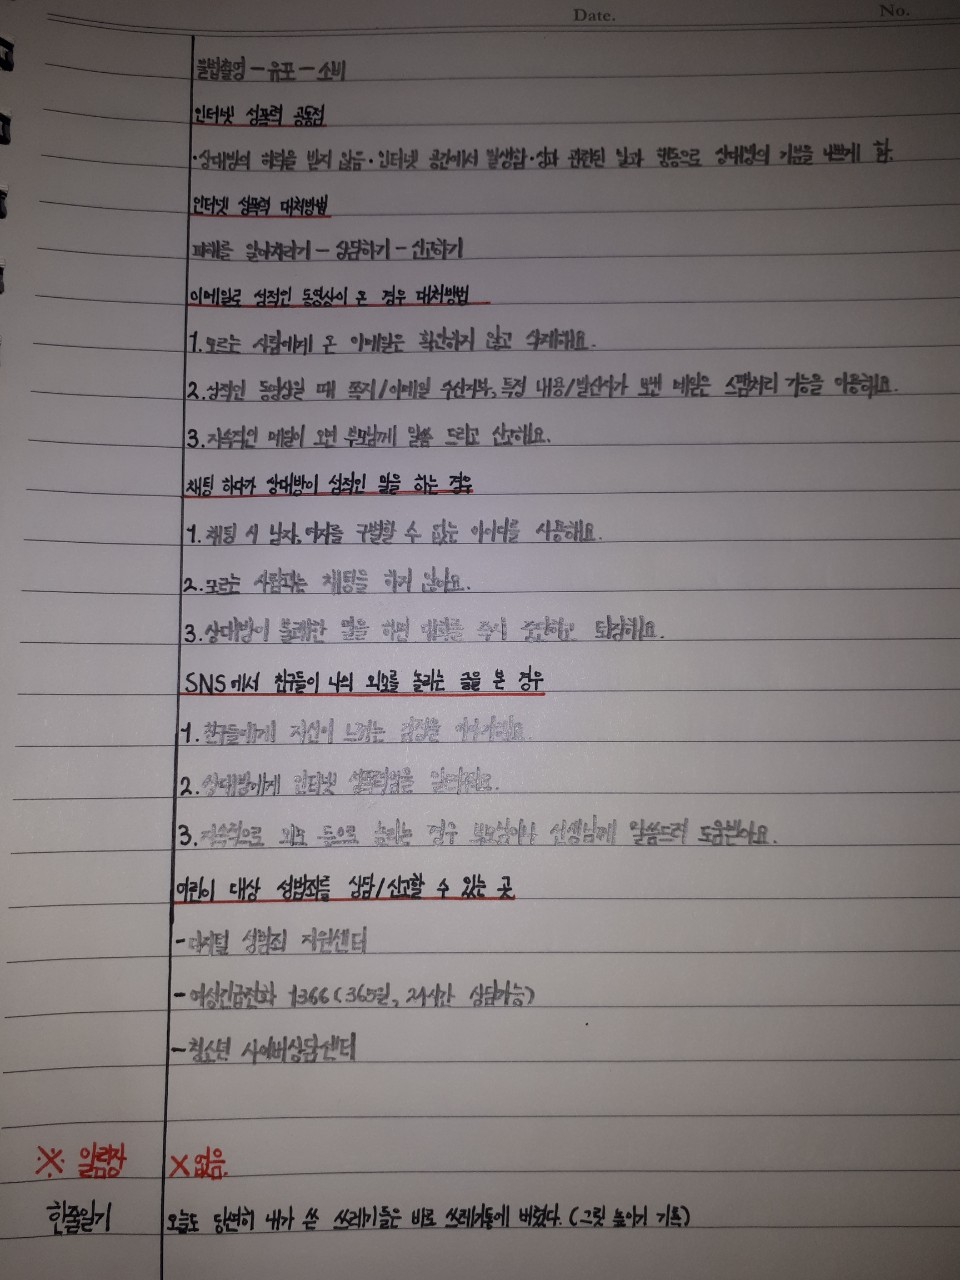 Date.
No.
불법촬영 - 유포 - 소비
인터넷 성폭력 공통점
·상대방의 허락을 받지 않음 ·인터넷 공간에서 발생함 ·성과 관련된 말과 행동으로 상대방의 기분을 나쁘게 함.
인터넷 성폭력 대처방법
피해를 알아차리기 - 상담하기 - 신고하기
이메일로 성적인 동영상이 온 경우 대처방법
1. 모르는 사람에게 온 이메일은 확인하지 않고 삭제해요.
2. 성적인 동영상일 때 쪽지/이메일 수신거부, 특정 내용/발신자가 보낸 메일은 스팸처리 기능을 이용해요.
3. 지속적인 메일이 오면 부모님께 말씀 드리고 신고해요.
채팅 하다가 상대방이 성적인 말을 하는 경우
1. 채팅 시 남자, 여자를 구별할 수 없는 아이디를 사용해요.
2. 모르는 사람과는 채팅을 하지 않아요.
3. 상대방이 불쾌한 말을 하면 대화를 즉시 중단하고 퇴장해요.
SNS에서 친구들이 나의 외모를 놀리는 글을 본 경우
1. 친구들에게 자신이 느끼는 감정을 이야기해요.
2. 상대방에게 인터넷 성폭력임을 알려줘요.
3. 지속적으로 외모 등으로 놀리는 경우 부모님이나 선생님께 말씀드려 도움받아요.
어린이 대상 성범죄를 상담/신고할 수 있는 곳
- 디지털 성범죄 지원센터
- 여성긴급전화 1366 (365일, 24시간 상담가능)
- 청소년 사이버상담센터
※ 알림장 X 없음.
한줄일기 오늘도 당연히 내가 쓴 쓰레기들은 바로 쓰레기통에 버렸다. (그릿 높이기 기록)